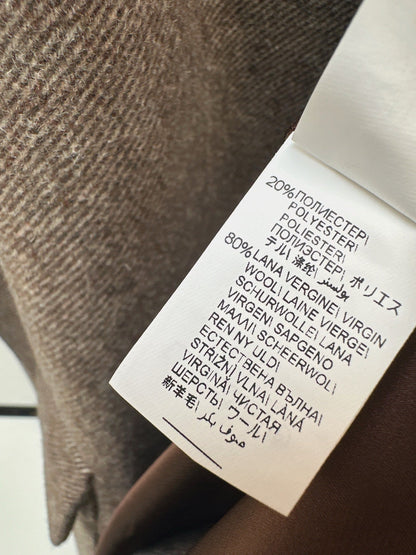 20%ПОЛИЕСТЕР\
POLYESTER\
POLIESTER\
ПОЛИЭСТЕР\
テル\ 涤纶\ بوليستر\ ポリエス
80% LANA VERGINE\ VIRGIN
WOOL\ LAINE VIERGE\
SCHURWOLLE\ LANA
VIRGEN\ SAPGENO
MAMI\ SCHEERWOL\
REN NY ULD\
ЕСТЕСТВЕНА ВЪЛНА\
STRIŽNÍ VLNA\ LÂNĂ
VIRGINĂ\ ЧИСТАЯ
ШЕРСТЬ\ ウール\
新羊毛\ صوف بكر\